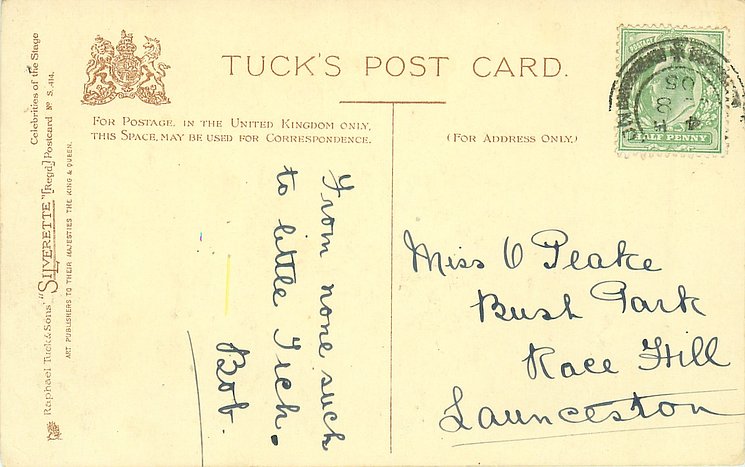 TUCK'S POST CARD.
FOR POSTAGE IN THE UNITED KINGDOM ONLY,
THIS SPACE, MAY BE USED FOR CORRESPONDENCE.
(FOR ADDRESS ONLY.)
Celebrities of the Stage
Raphael Tuck & Sons' "SILVERETTE" [Regd.] Postcard No S. 414.
ART PUBLISHERS TO THEIR MAJESTIES THE KING & QUEEN.
From none such
to little Tich.
Bob.
Miss O Peake
Bush Park
Race Hill
Launceston
HALF PENNY